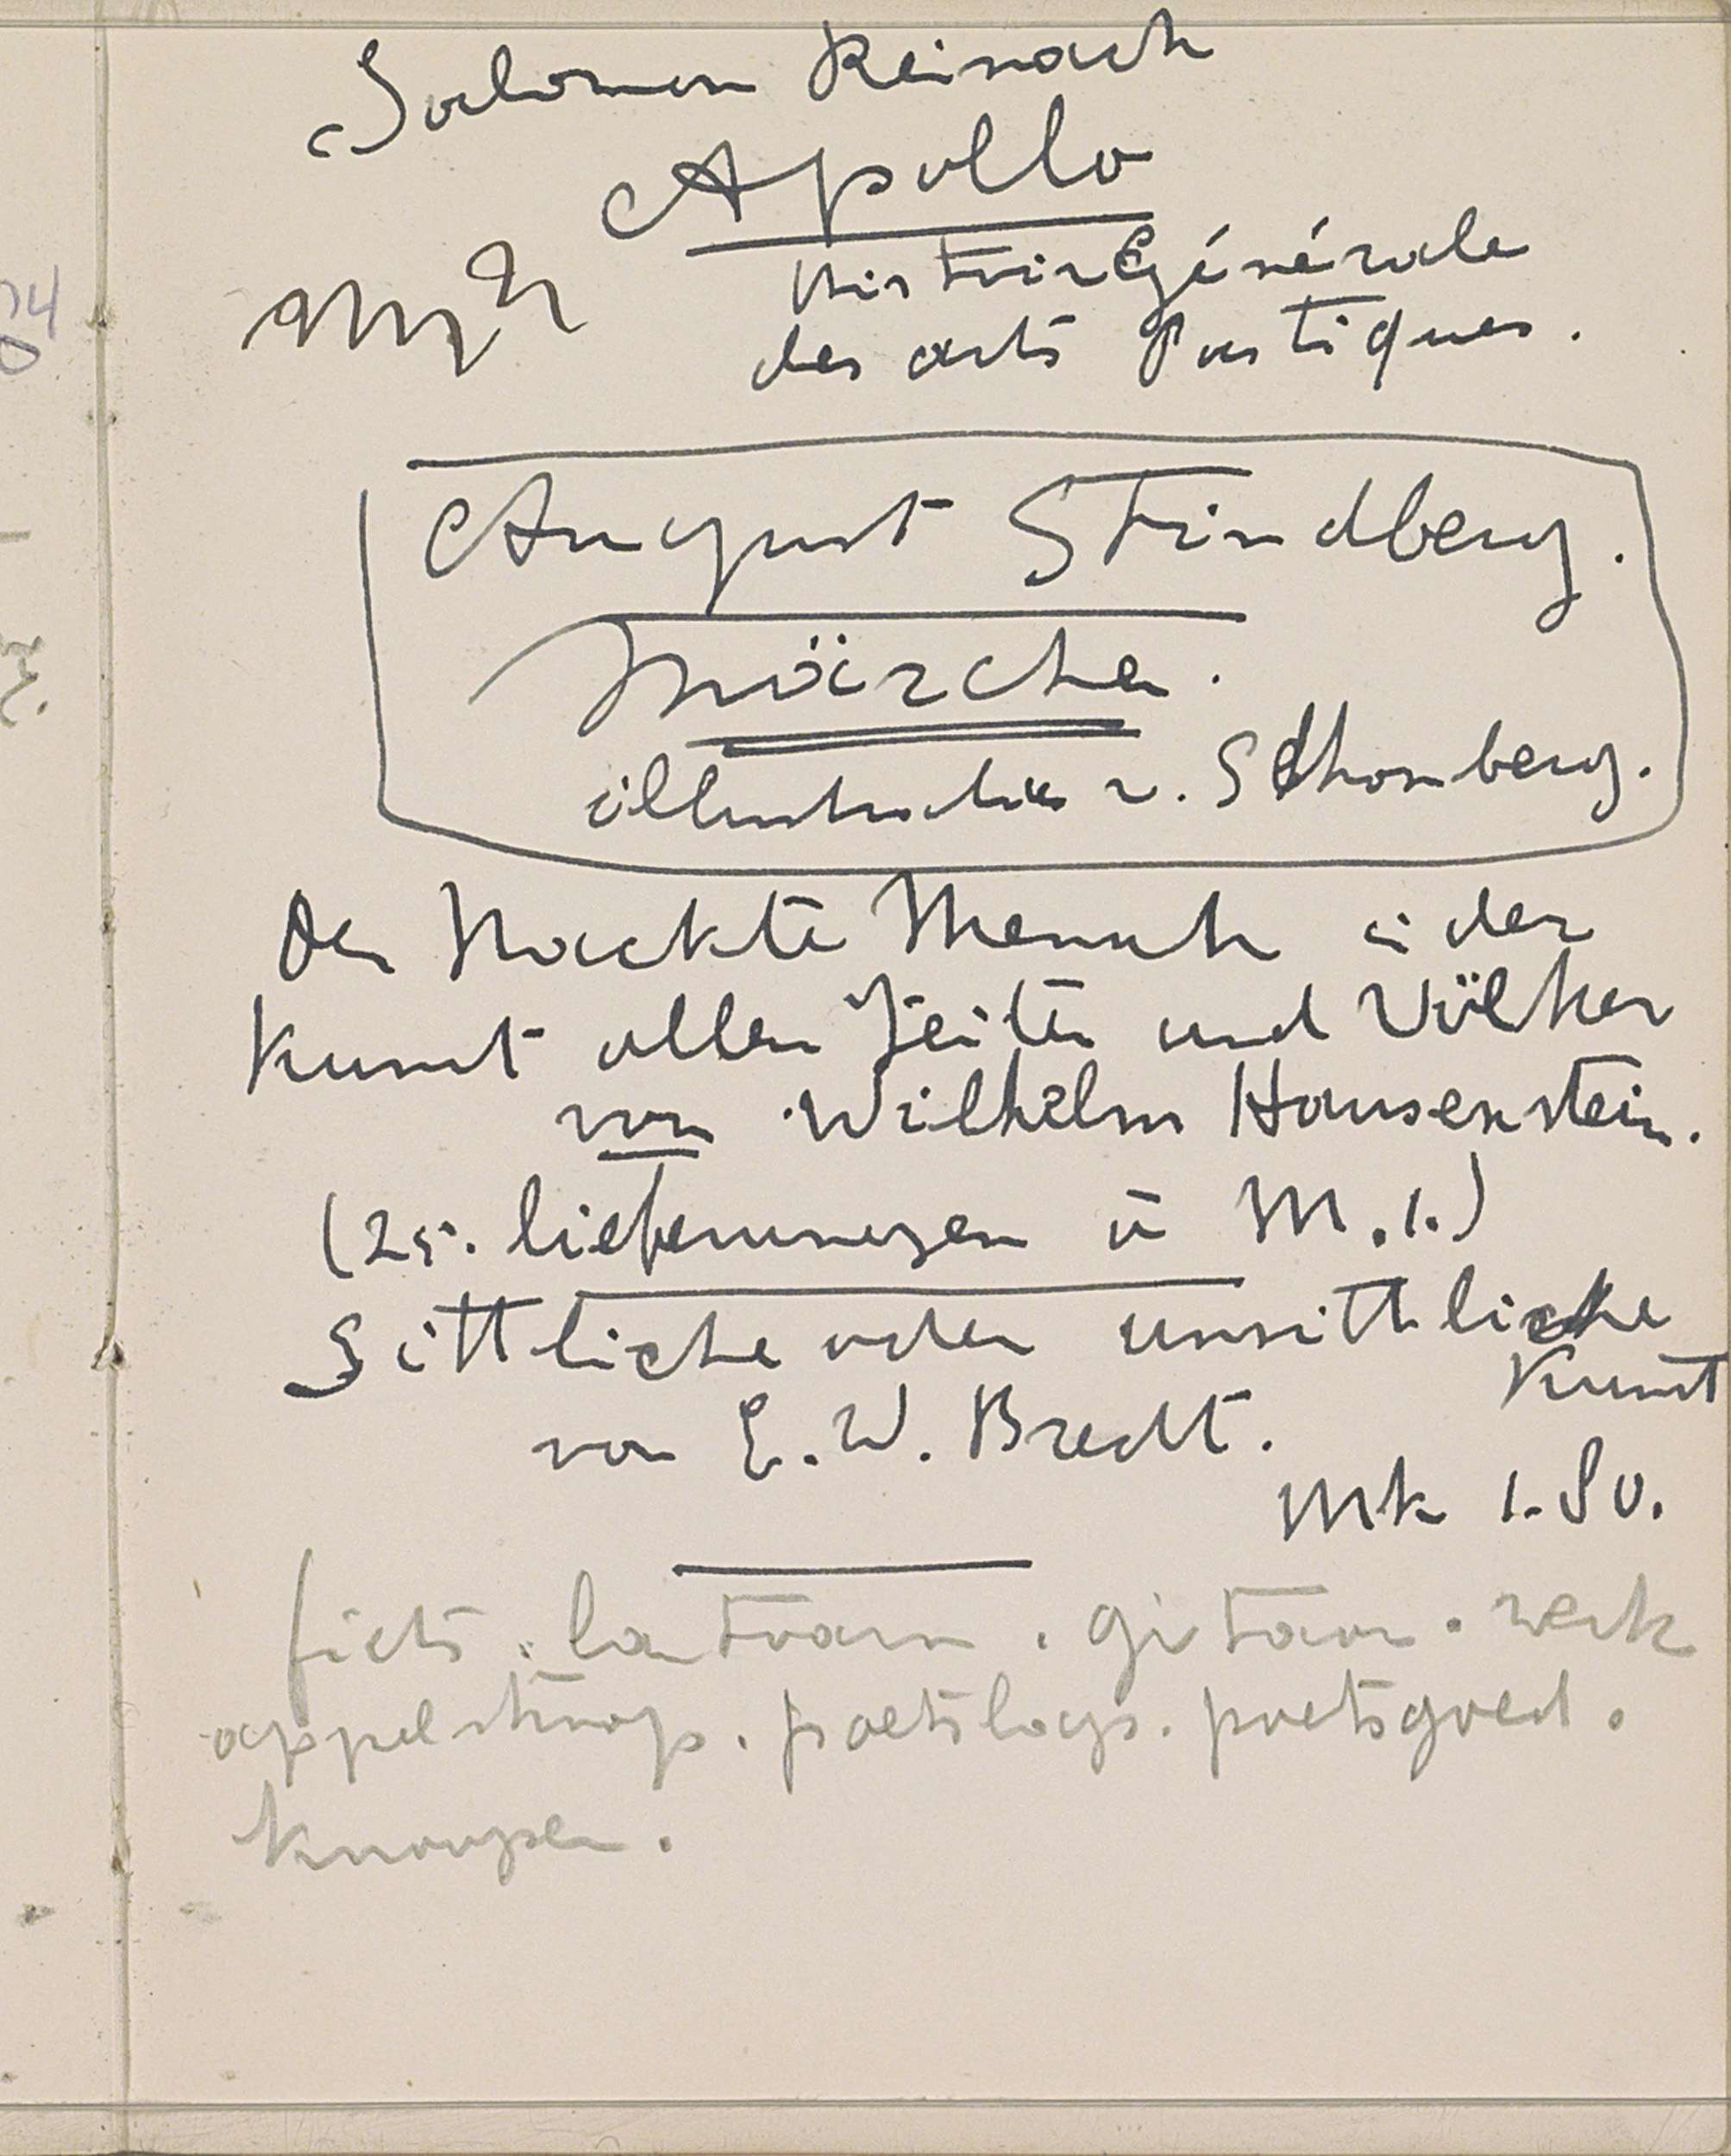 Salomon Reinach
Apollo
Histoire Générale
des arts Plastiques.
August Strindberg.
Märchen.
illustration v. Schomberg.
Der Nackte Mensch i der
Kunst allen Zeiten und Völker
von Wilhelm Hausenstein.
(25. lieferungen ü M. 1.)
Sittliche oder unsittliche
Kunst
von E. W. Bredt.
Mk 1.80.
fiets. lantaarn. gitaar. werk
appelstroop. poetslap. poetsgoed.
knoopen.